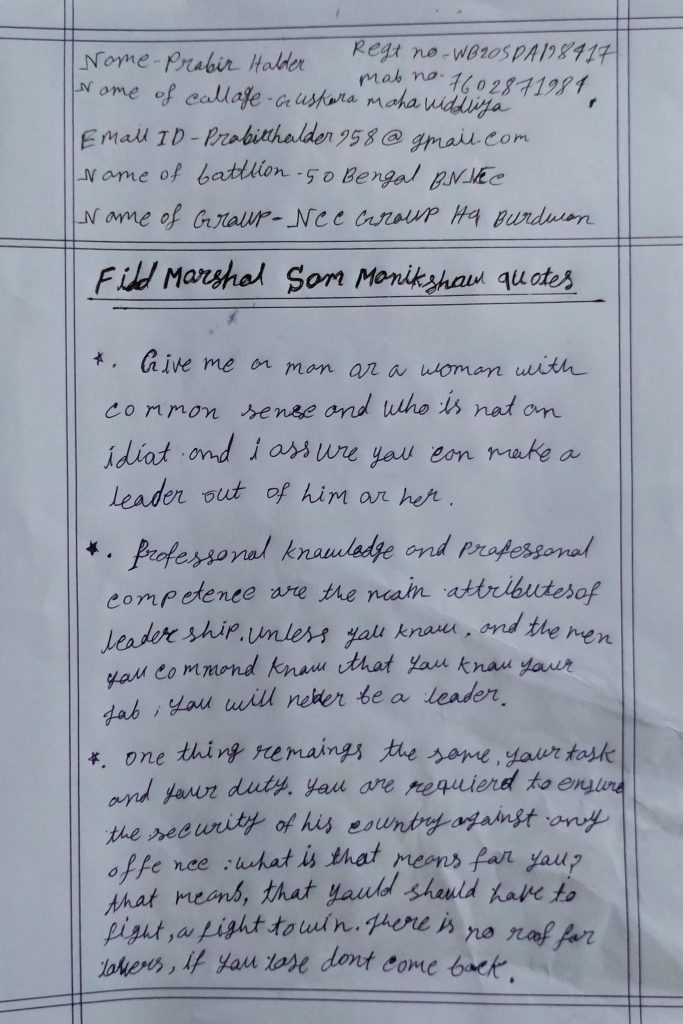 Name - Prabir Halder
Regt no - WB20SDA128417
mob no - 7602871984
Name of callage - Guskara mahaviddliya
Email ID - Prabirhalder958@gmail.com
Name of battlion - 50 Bengal BN NCC
Name of Group - NCC Group HQ Burdwan
Fild Marshal Sam Manikshaw quotes
*. Give me a man or a woman with
common sense and who is not an
idiat and i assure you can make a
leader out of him or her.
*. Professonal knowledge and professonal
competence are the main attributes of
leadership. Unless you know, and the men
you command know that you know your
job, you will never be a leader.
*. One thing remaings the same, your task
and your duty. You are requierd to ensure
the security of his country against any
offence : what is that means for you?
that means, that yould should have to
fight, a fight to win. There is no roof for
losers, if you lose dont come back.